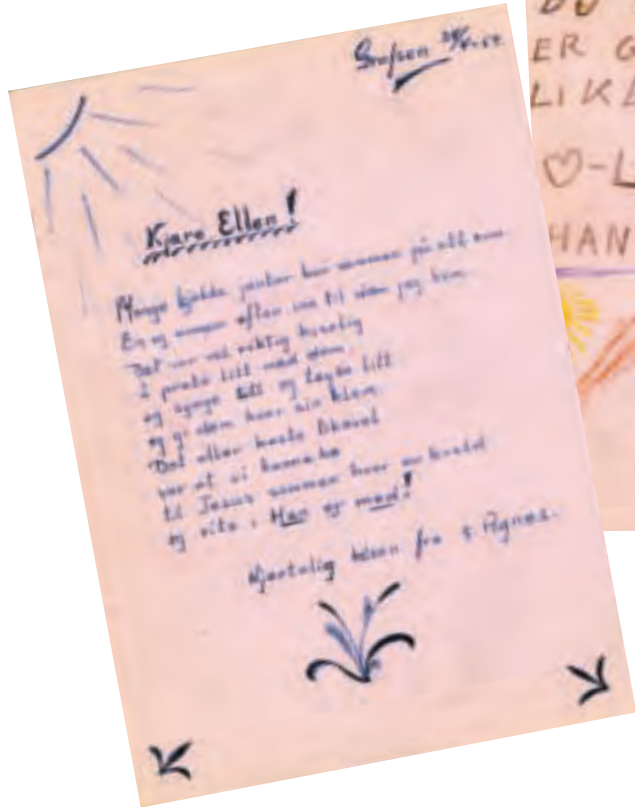 Grefsen
Kjære Ellen!
Mange kjekke jenter har sammen på ett rom
En og annen aften inn til dem jeg kom
Det var vel riktig koselig
å prate litt med dem
og synge litt og løyse litt
og gi dem hver sin klem
Det aller beste likevel
var at vi kunne be
til Jesus sammen hver en kveld
og vite: Han er med!
Hjertelig hilsen fra s. Agnes.
DU
ER G
LIKE
♡-L
HAN